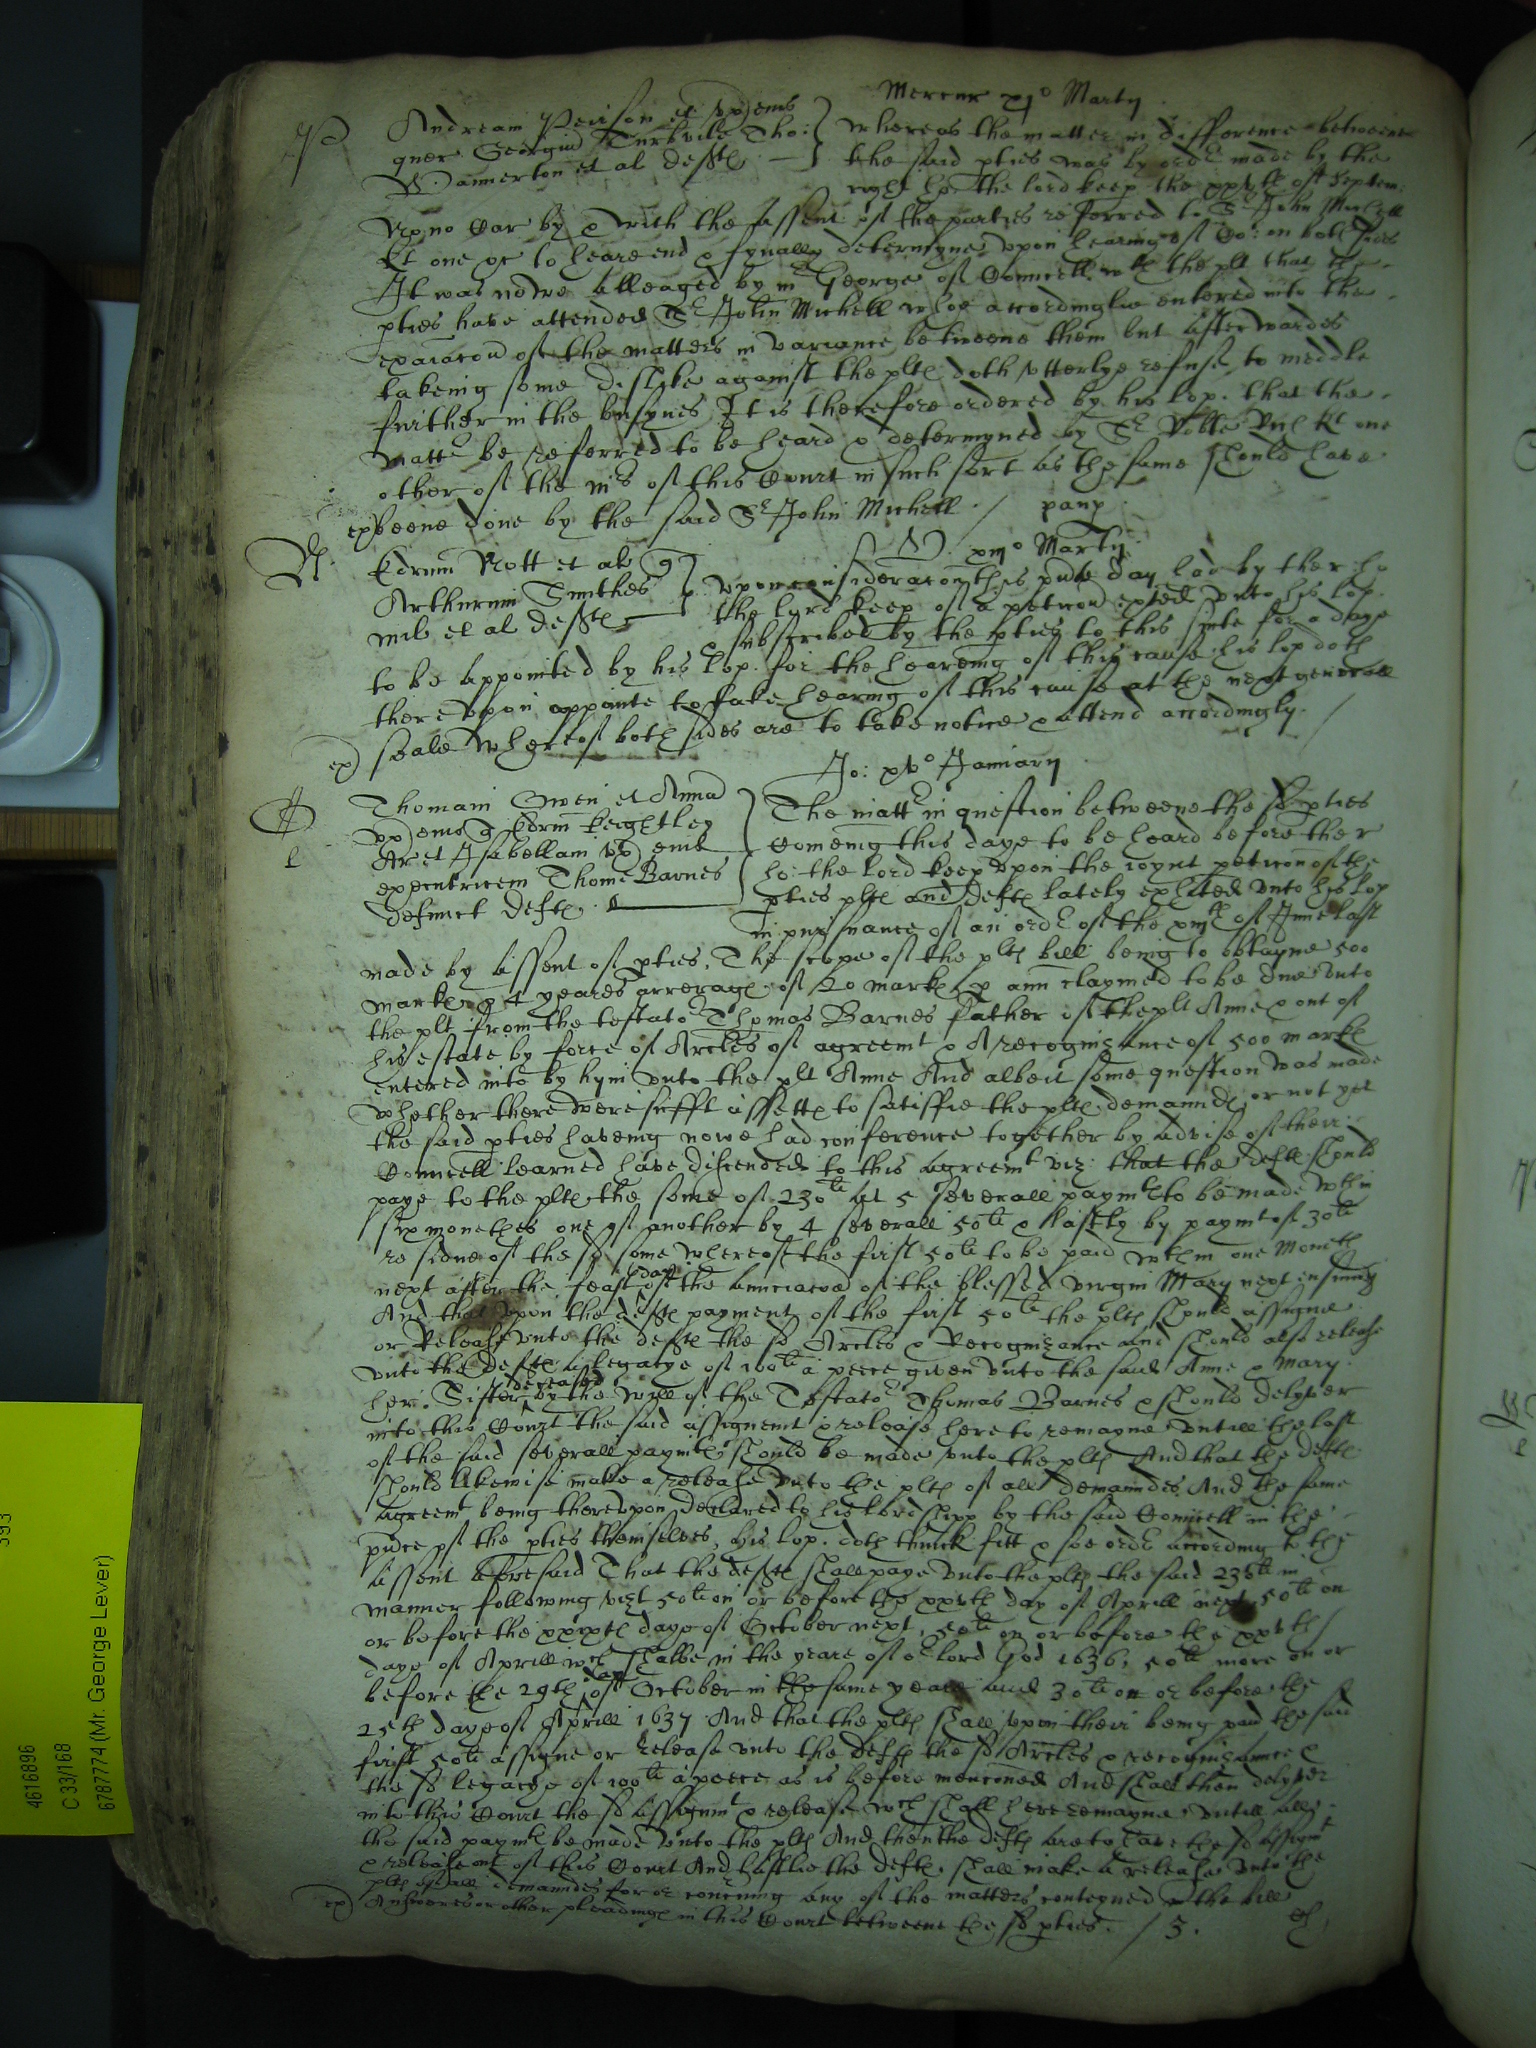 Mercur xjo Martij
P Andream Peirson et uxem eius
quer Georgiu Turbvile Tho:
Wannerton et al deftes
Whereas the matter in difference betweene
the said pties was by ordr made by the
right ho: the lord keep the xxvth of Septem:
Upno Car by & with the assent of the parties referred to Sr John Michell
kt one &c to heare end & fynally determyne upon hearing of Co: on both sides
It was nowe alleaged by mr George of Councell wth the plt that the
pties have attended Sr John Michell whoe accordinglie entered into the
exaiacon of the matters in variance betweene them but afterwardes
takeing some dislike against the pltes doth utterlye refuse to meddle
further in the busynes It is therefore ordered by his lop. that the
mattr be referred to be heard & determyned by Sr Kt one
other of the mrs of this Court in such sort as the same should have
ex) beene done by the said Sr John Michell. / panp
M. xjo Martij
Edrum Nott et al q
Arthurum Smithes
mil et al deftes
upon consideracon this pnte day had by the r: ho
the lord keep of a peticon exted unto his lop.
subscribed by the pties to this suite for a daye
to be appointed by his lop. for the heareing of this cause his lop doth
thereupon appointe to take hearing of this cause at the next generall
ex) seale whereof both sides are to take notice & attend accordingly. /
Jo: xvo Januarij
Thomam Owen et Anna
ux eius q Edrm Keightley
Ar et Isabellam ux eius
executricem Thome Barnes
defunct deftes
The mattr in question betweene the sd pties
Comeing this daye to be heard before the r
ho: the Lord keep upon the ioynt peticon of the
pties pltes and deftes lately exhited unto his lop
in pursuance of an ordr of the of June last
made by assent of pties. The scope of the pltes bill being to obtayne 500
markes & 4 yeares arrerages of 50 markes p ann claymed to be due unto
the plt from the testator Thomas Barnes Father of the plt Anne & out of
his estate by force of Arcles of agreemt & A recognizance of 500 markes
entered into by hym unto the plt Anne And albeit some question was made
whether there were sufft assettes to satisfie the pltes demaundes, or not yet
the said pties haveing nowe had conference together by advise of their
Councell learned have discended to this agreemt viz: that the deftes should
paye to the pltes the some of 230li at 5 severall paymtes to be made wthin
six monethes one of another by 4 severall 50li & lastly by paymt of 30li
residue of the sd some whereof the first 50li to be paid wthin one Moneth
next after the feast day of the Anunciacon of the blessed virgin Mary next ensueing
And that upon the deftes payment of the first 50li the pltes should assigne
or Release unto the deftes the sd Arcles & Recognizance and should also release
unto the deftes a legacye of 100li a peece given unto the said Anne & Mary
her Sister deceased by the will of the Testator Thomas Barnes & should delyver
into this Court the said assignemt & release here to remayne untill the last
of the said severall paymtes should be made unto the pltes And that the deftes
should likewise make a release unto the pltes of all demaundes And the same
agreemt being thereupon declared to his Lordshipp by the said Councell in the
pnce of the pties themselves, his lop. doth thinck fitt & soe ordr according to the
assent aforesaid That the deftes shall paye unto the pltes the said 230li in
manner following vizt 50li on or before the xxvth day of Aprill next, 50li on
or before the xxixth daye of October next, 50li on or before the xxvth
daye of Aprill wch shalbe in the yeare of or lord God 1636, 50li more on or
before the 29th day of October in the same yeare and 30li on or before the
25th daye of Aprill 1637 And that the pltes shall upon their being paid the said
first 50li assigne or release unto the deftes the sd Arcles & recognizance &
the sd legacye of 100li a peece as is before mencioned And shall then delyver
into this Court the sd assignmt & release wch shall here remayne untill all
the said paymtes be made unto the pltes And then the deftes are to have the sd assignmt
& release out of this Court And Lastlie the deftes. shall make a release unto the
pltes of all demaundes for or concerning any of the matters conteyned in the bill
ex) Answeres or other pleadinges in this Court betweene the sd pties. / 5.
4616896
C 33/168
6787774 (Mr. George Lever)